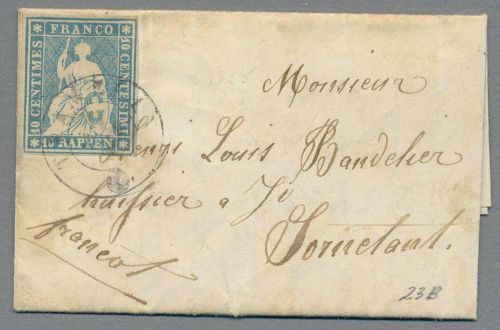 FRANCO
10 CENTIMES
10 CENTESIMI
10 RAPPEN
Monsieur
Henri Louis Bandelier
huissier a
Sornetant.
franco
23B